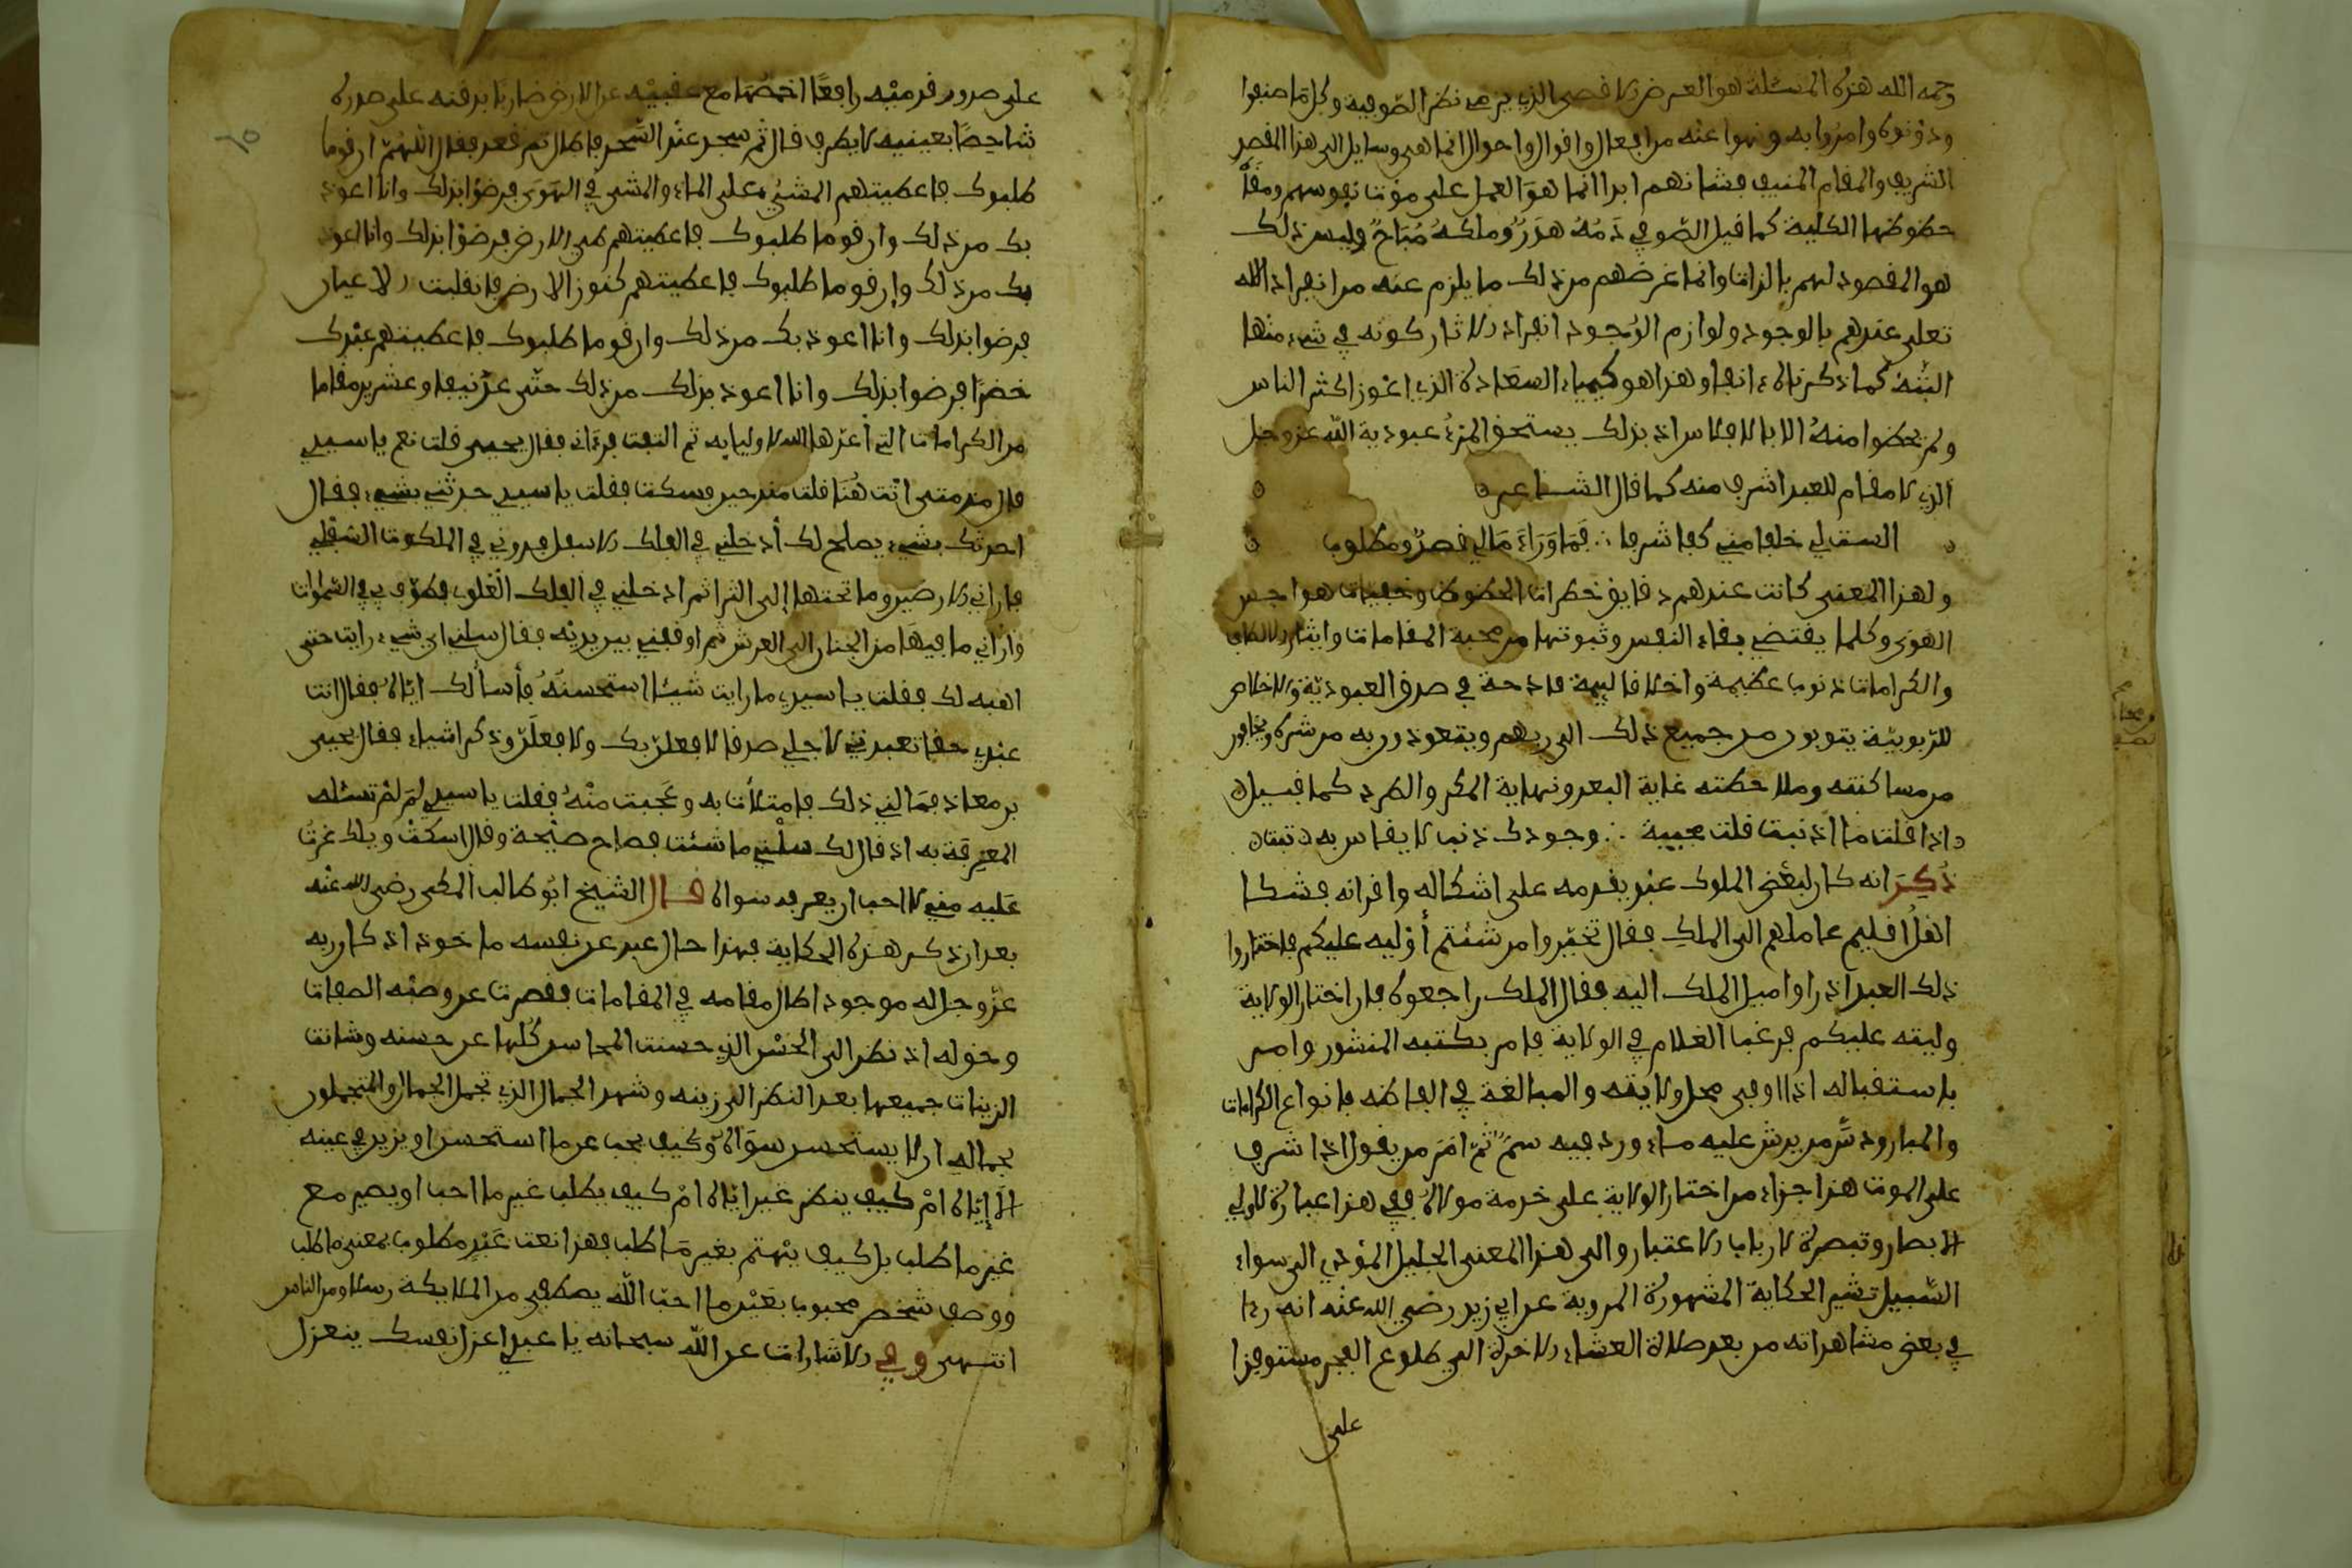 رحمه الله هذه المسئلة هو الغرض الاقصى الذي يرمى نظر الصوفية وكل ما صنفوا
ودونوه وامروا به ونهوا عنه من افعال واقوال واحوال انما هي وسايل الى هذا المقصد
الشريف والمقام المنيف فشانهم ابدا انما هو العمل على موت نفوسهم ومقت
حظوظها الكلية كما قيل الصوفي دمه هدر وملكه مباح وليس ذلك
هو المقصود لهم بالذات وانما غرضهم من ذلك ما يلزم عنه من انفراد الله
تعلى عندهم بالوجود ولوازم الوجود انفراد الاثار كونه في شيء منها
البتة كما ذكرناه انفا وهذا هو كيمياء السعادة الذي اعوز اكثر الناس
ولم يحظوا منه الا بالافلاس اذ بذلك يستحق المرء عبودية الله عز وجل
الذي لا مقام للعبد اشرف منه كما قال الشاعر
الست لي خلفا مني كفا شرفا ∴ فما وراءك لي قصد ومطلوب
ولهذا المعنى كانت عندهم دقايق خطرات الحظوظ وخفيات هواجس
الهوى وكلما يقتضي بقاء النفس وثبوتها من محبة المقامات وايثار
والكرامات ذنوبا عظيمة واخلاقا ليمة قادحة في صدق العبودية والاخلاص
للربوبية يتوبون من جميع ذلك الى ربهم ويتعوذون به من شره
من مساكنته وملاحظته غاية البعد ونهاية المكر والطرد كما قيل
اذا قلت ما اذنبت قلت مجيبة ∴ وجودك ذنب لا يقاس به ذنب
ذكر انه كان لبعض الملوك عبد يقدمه على اشكاله واقرانه فشكا
اهل اقليم عاملهم الى الملك فقال تخيروا من شئتم أوليه عليكم فاختاروا
ذلك العبد اذ راوا ميل الملك اليه فقال الملك راجعوه فان اختار الولاية
وليته عليكم فرغب الغلام في الولاية فامر بكتبه المنشور وامر
باستقباله اذا اوفى محل ولايته والمبالغة في الطافه بانواع الكرامات
والمبار ودس من يرش عليه ماء ورد فيه سم ثم امر من يقول اذا اشرف
على الموت هذا جزاء من اختار الولاية على خدمة مولاه ففي هذا عبرة لاولي
الابصار وتبصرة لارباب الاعتبار والى هذا المعنى الجليل المؤدي الى سواء
السبيل تشير الحكاية المشهورة المروية عن ابي يزيد رضي الله عنه انه رءا
في بعض مشاهداته من بعد صلاة العشاء الاخرة الى طلوع الفجر مستوفزا
على
على صدور قدميه رافعا اخمصهما مع عقبيه عن الارض ضاربا بذقنه على صدره
شاخصا بعينيه لا يطرف قال ثم سجد عند السحر فاطال ثم قعد فقال اللهم ان قوما
طلبوك فاعطيتهم المشي على الماء والمشي في الهوى فرضوا بذلك وانا اعوذ
بك من ذلك وان قوما طلبوك فاعطيتهم طي الارض فرضوا بذلك وانا اعوذ
بك من ذلك وإن قوما طلبوك فاعطيتهم كنوز الارض فانقلبت الاعيان
فرضوا بذلك وانا اعوذ بك من ذلك وان قوما طلبوك فاعطيتهم عبدك
خضرا فرضوا بذلك وانا اعوذ بذلك من ذلك حتى عد نيفا وعشرين مقاما
من الكرامات التي أعدها الله لاوليايه ثم التفت فرءاني فقال يحيى قلت نعم يا سيدي
قال مذ متى انت هنا قلت منذ حين فسكت فقلت يا سيدي حدثني بشيء فقال
احدثك بشيء يصلح لك أدخلني في الفلك الاسفل فدورني في الملكوت السفلي
فاراني الارضين وما تحتها إلى الثرا ثم ادخلني في الفلك العلوي فطوف بي في السموات
واراني ما فيها من الجنان الى العرش ثم اوقفني بين يديه فقال سلني اي شيء رايت حتى
اهبه لك فقلت يا سيدي ما رايت شيئا استحسنته فأسألك اياه فقال انت
عبدي حقا تعبدني لاجلي صدقا لافعلن بك ولافعلن وذكر اشياء فقال يحيى
بن معاذ فهالني ذلك فامتلات به وعجبت منه فقلت يا سيدي لم لم تسئله
المعرفة به اذ قال لك سلني ما شئت فصاح صيحة وقال اسكت ويلك غرت
عليه مني لا احب ان يعرفه سواه قال الشيخ ابو طالب المكي رضي الله عنه
بعد ان ذكر هذه الحكاية فهذا حال عبد عن نفسه ماخوذ اذ كان ربه
عز وجل له موجود اطال مقامه في المقامات فقصرت عن وصفه الصفات
وحق له اذ نظر الى الحسن الذي حسنت المحاسن كلها عن حسنه وشانت
الزينات جميعها بعد النظر الى زينه وشهد الجمال الذي تجمل الجمال والمتجملون
بجماله ان لا يستحسن سواه وكيف يحب غير ما استحسن او يزين في عينه
الا إياه ام كيف ينظر غير اياه ام كيف يطلب غير ما احب او يصير مع
غير ما طلب بل كيف يهتم بغير ما طلب فهذا نعت عبد مطلوب بمعنى ما طلب
ووصف شخص محبوب بغير ما احب الله يصطفي من الملايكة رسلا ومن الناس
انتهى وفي الاشارات عن الله سبحانه يا عبدي اعزل نفسك ينعزل